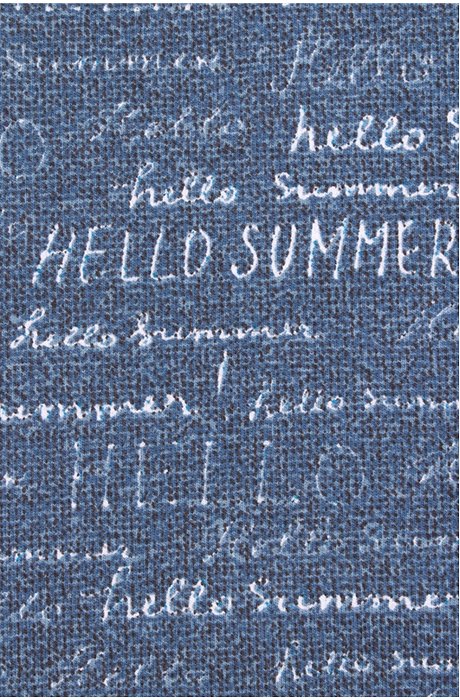 summer Hello
Hello hello
hello summer
HELLO SUMMER
hello summer
summer hello summer
HELLO
summer Hello
hello summer
Hello hello summer